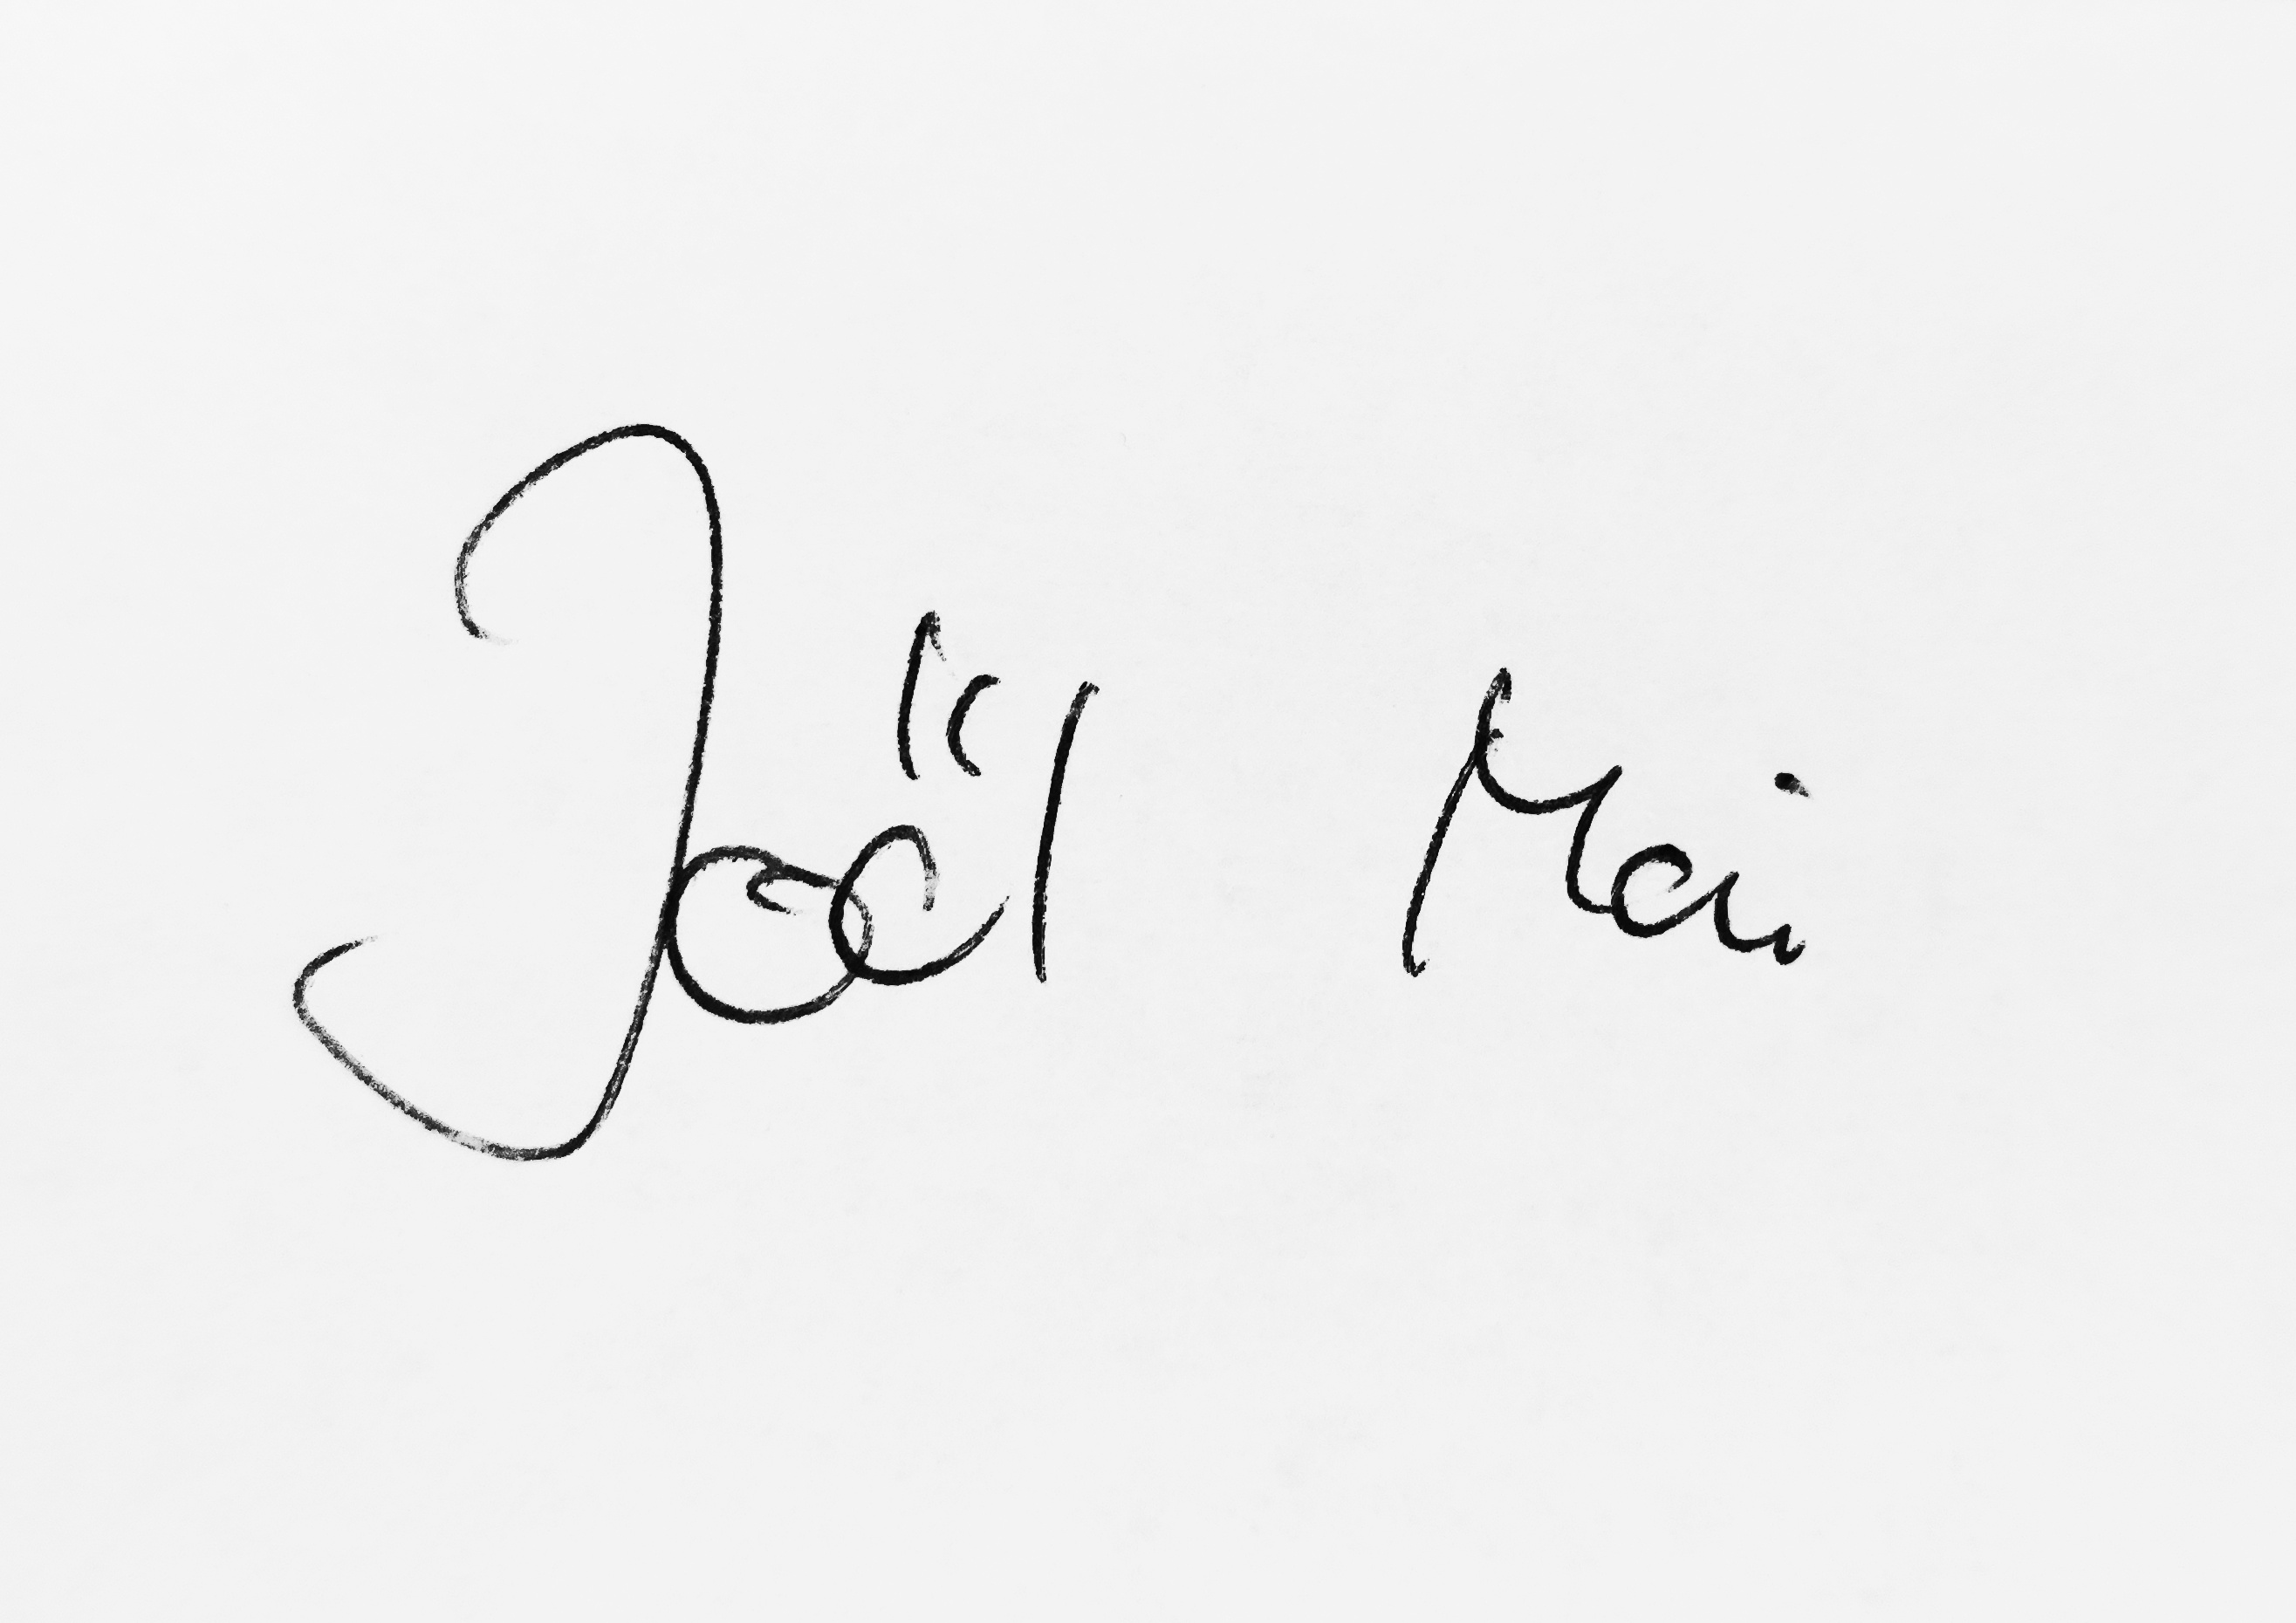 Joël Mai